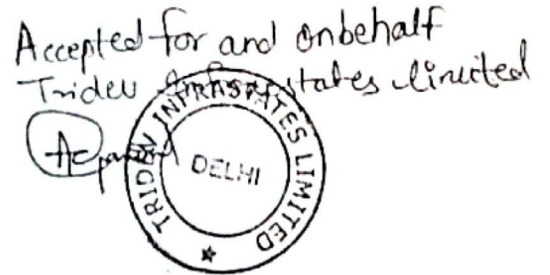 Accepted for and onbehalf
Tridev Infraestates limited
TRIDEV INFRAESTATES LIMITED
DELHI